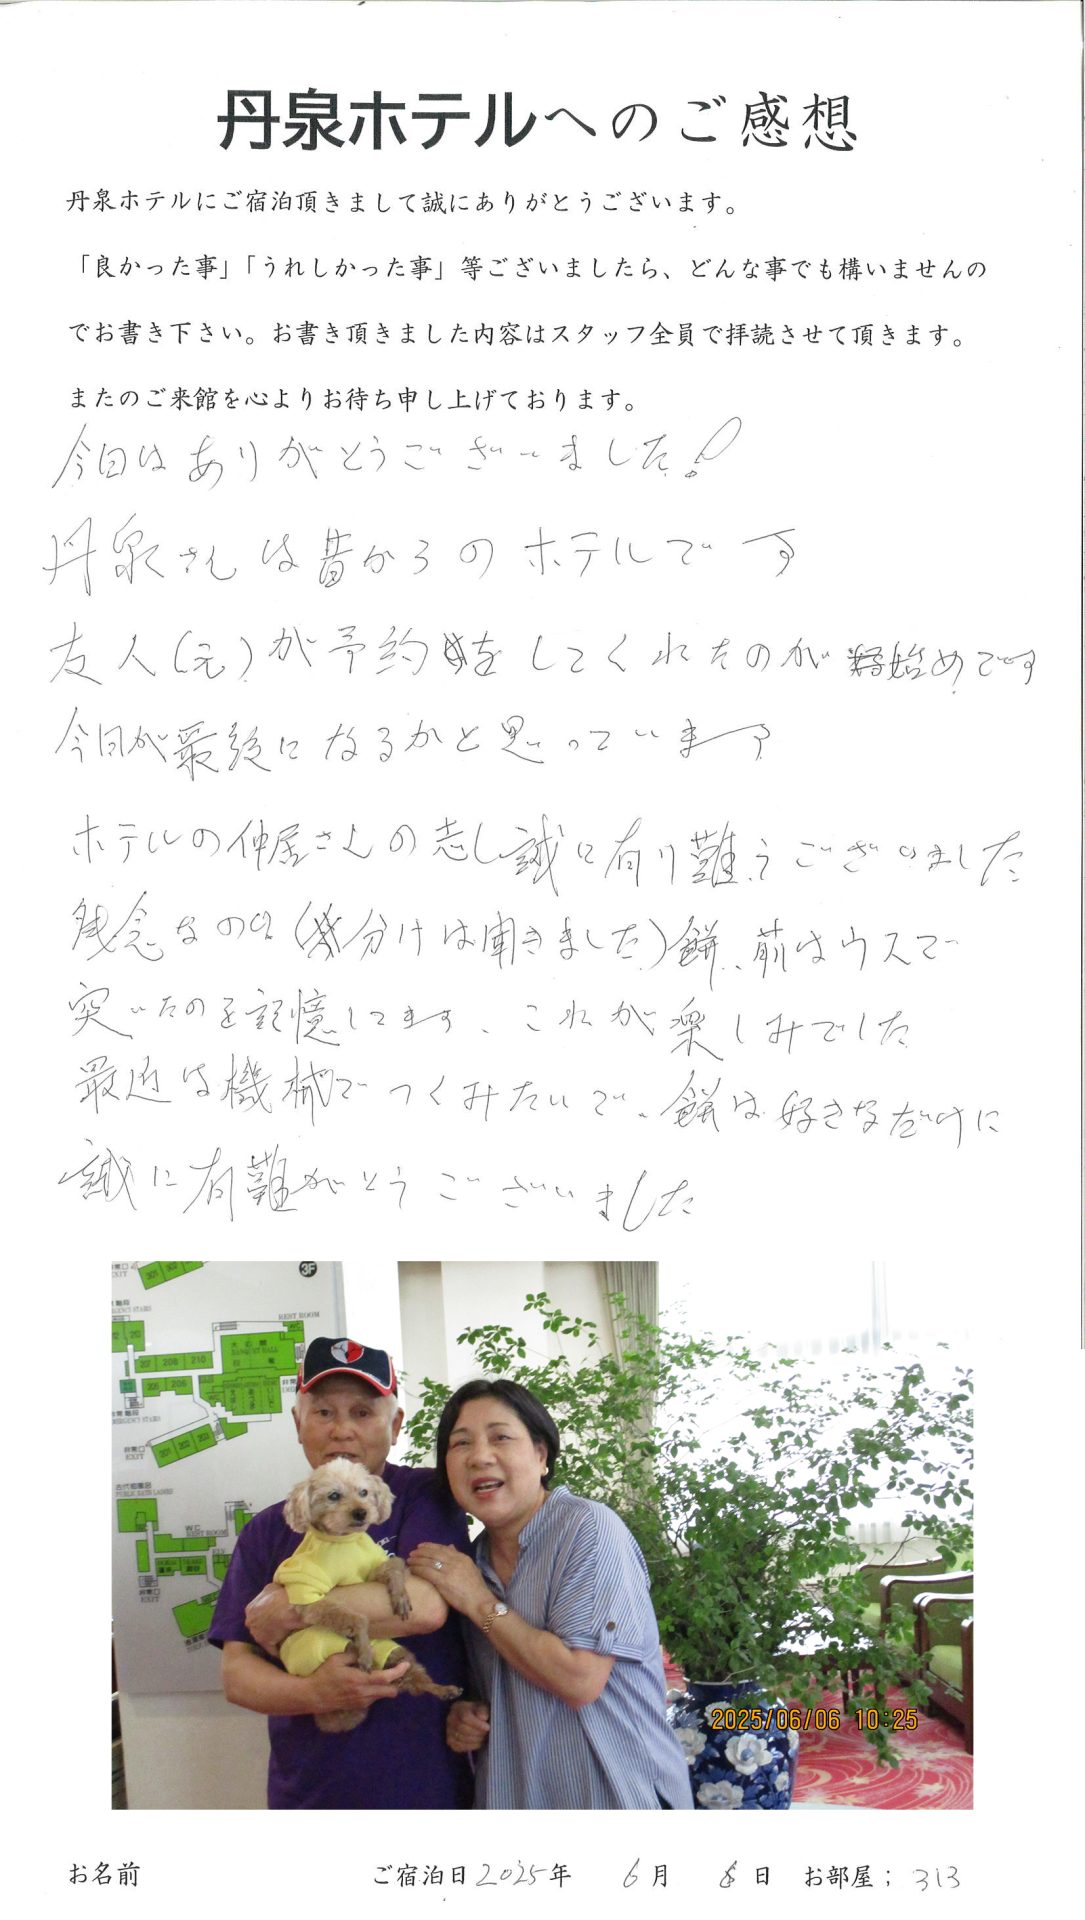 丹泉ホテルへのご感想
丹泉ホテルにご宿泊頂きまして誠にありがとうございます。
「良かった事」「うれしかった事」等ございましたら、どんな事でも構いませんの
でお書き下さい。お書き頂きました内容はスタッフ全員で拝読させて頂きます。
またのご来館を心よりお待ち申し上げております。
今日はありがとうございました!
丹泉さんは昔からのホテルです
友人(元)が予約をしてくれたのが始めです
今日が最後になるかと思っています
ホテルの仲居さんの志し誠に有り難うございました
残念なのは(分けは聞きました)餅、前はウスで
突いたのを記憶してます、これが楽しみでした
最近は機械でつくみたいで、餅は好きなだけに
誠に有難がとうございました
3F
非常口
EXIT
301 302
非常階段
EMERGENCY STAIRS
REST ROOM
大広間
BANQUET HALL
207 208 210
205 206
EMERGENCY STAIRS
非常口
EXIT
201 202 203
PUBLIC BATH LADIES
W.C
REST ROOM
ELV.
非常口
EXIT
2025/06/06 10:25
お名前
ご宿泊日2025年 6月 日 お部屋; 313